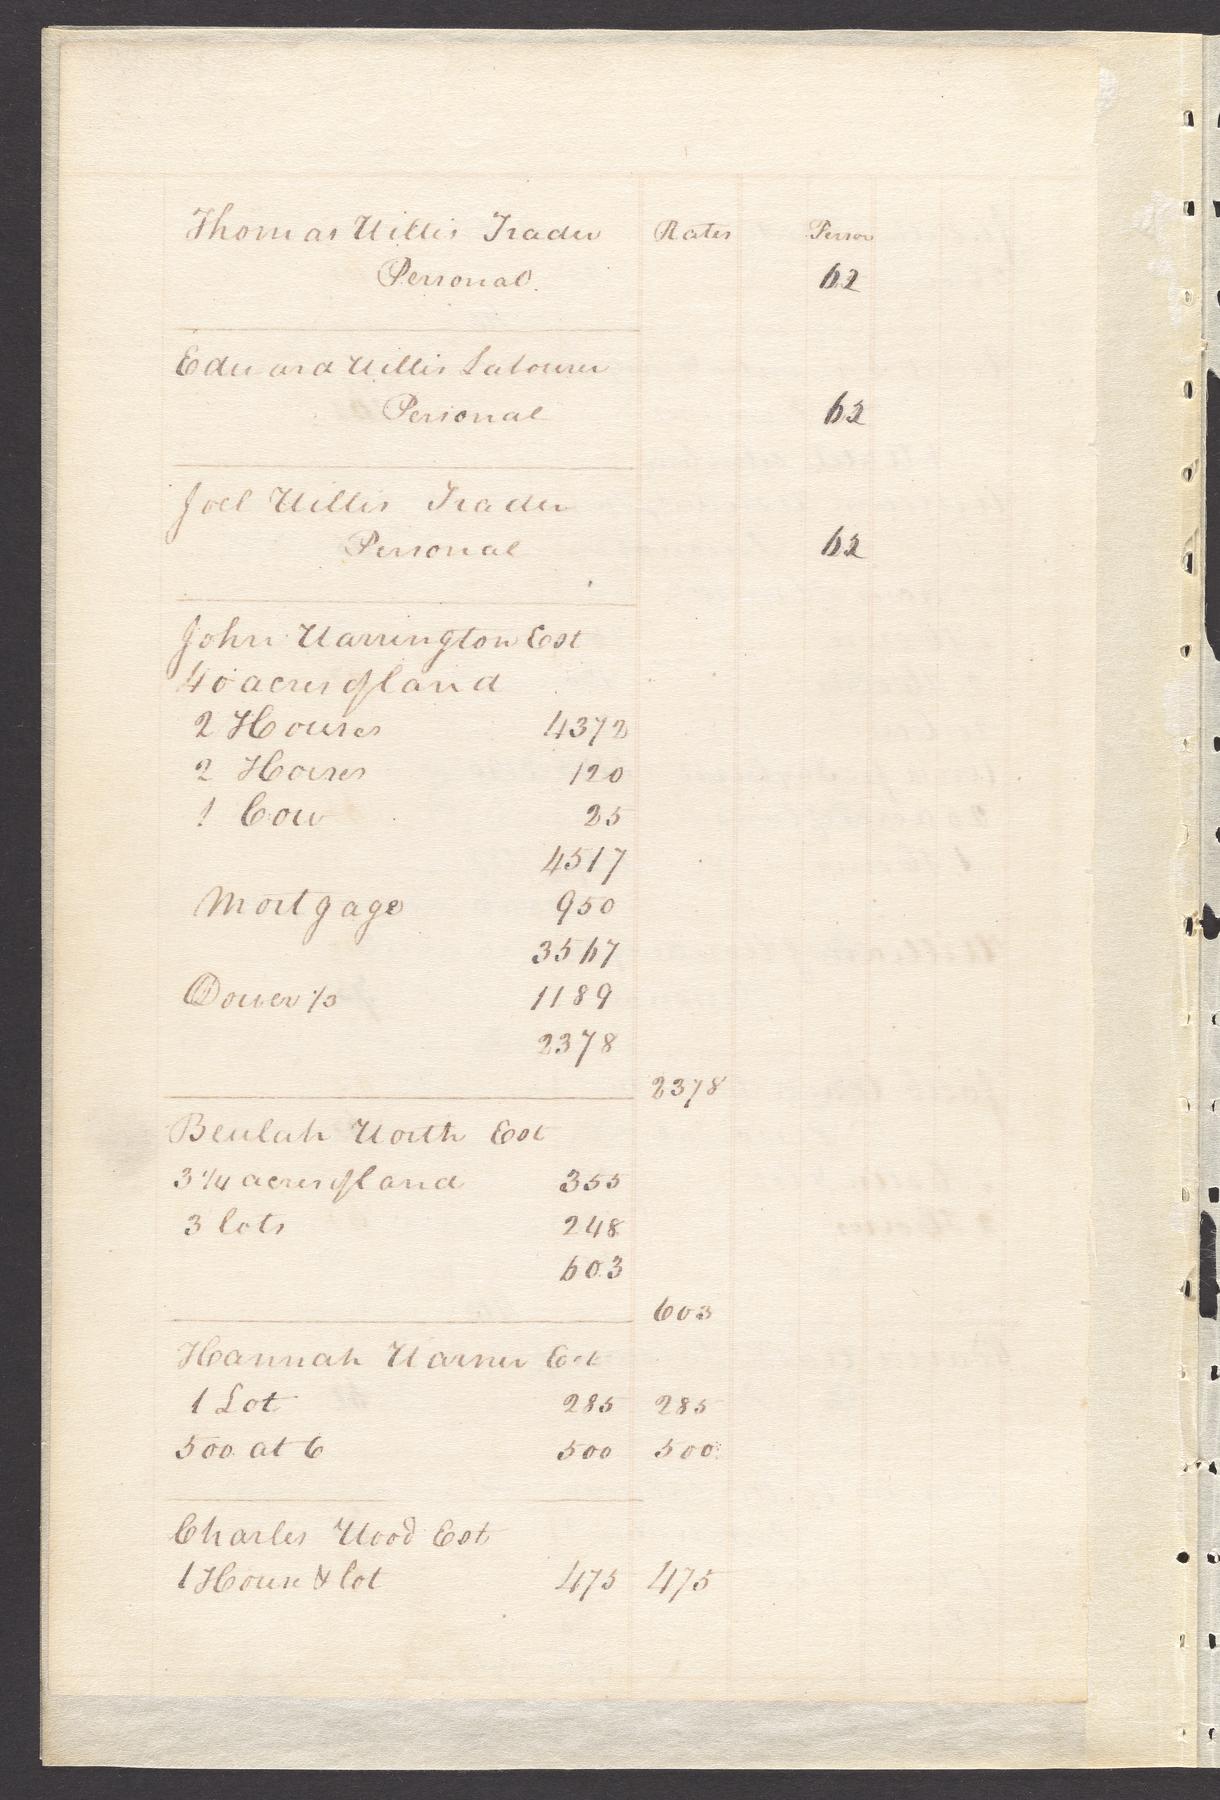 Thomas Willis Trader Rates Person
Personal 62
Edward Willis Labourer
Personal 62
Joel Willis Trader
Personal 62
John Warrington Est
40 acres of land
2 Houses 4372
2 Horses 120
1 Cow 25
4517
Mortgage 950
3567
Dower 1/3 1189
2378
2378
Beulah Worth Est
3 1/4 acres of land 355
3 lots 248
603
603
Hannah Warner Est
1 Lot 285 285
500 at 6 500 500
Charles Wood Est
1 House & lot 475 475